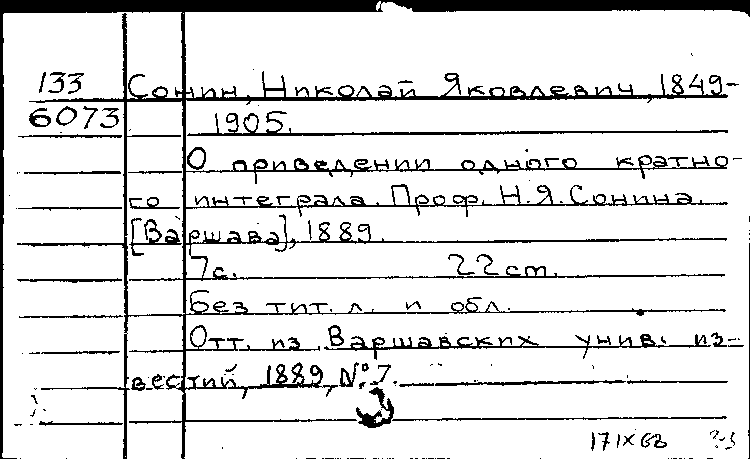 133 Сонин, Николай Яковлевич, 1849-
6073 1905.
О приведении одного кратно-
го интеграла. Проф. Н.Я.Сонина.
[Варшава], 1889.
7с. 22 cm.
Без тит. л. и обл.
Отт. из Варшавских унив. из-
вестий, 1889, № 7.